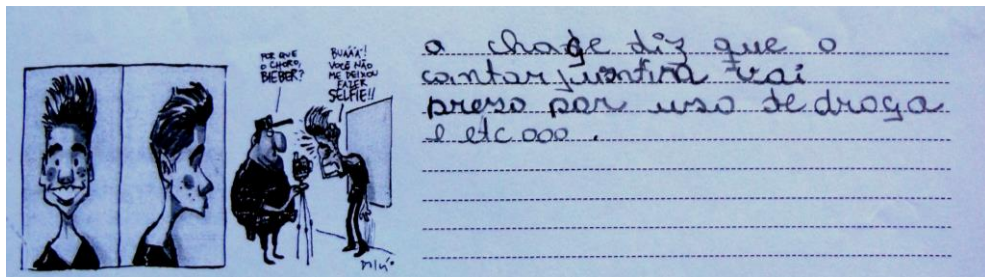 POR QUE
O CHORO,
BIEBER?
BUÁÁÁ!
VOCÊ NÃO
ME DEIXOU
FAZER
SELFIE!!
o charge diz que o
cantar
preso por uso de droga
e etc ooo.